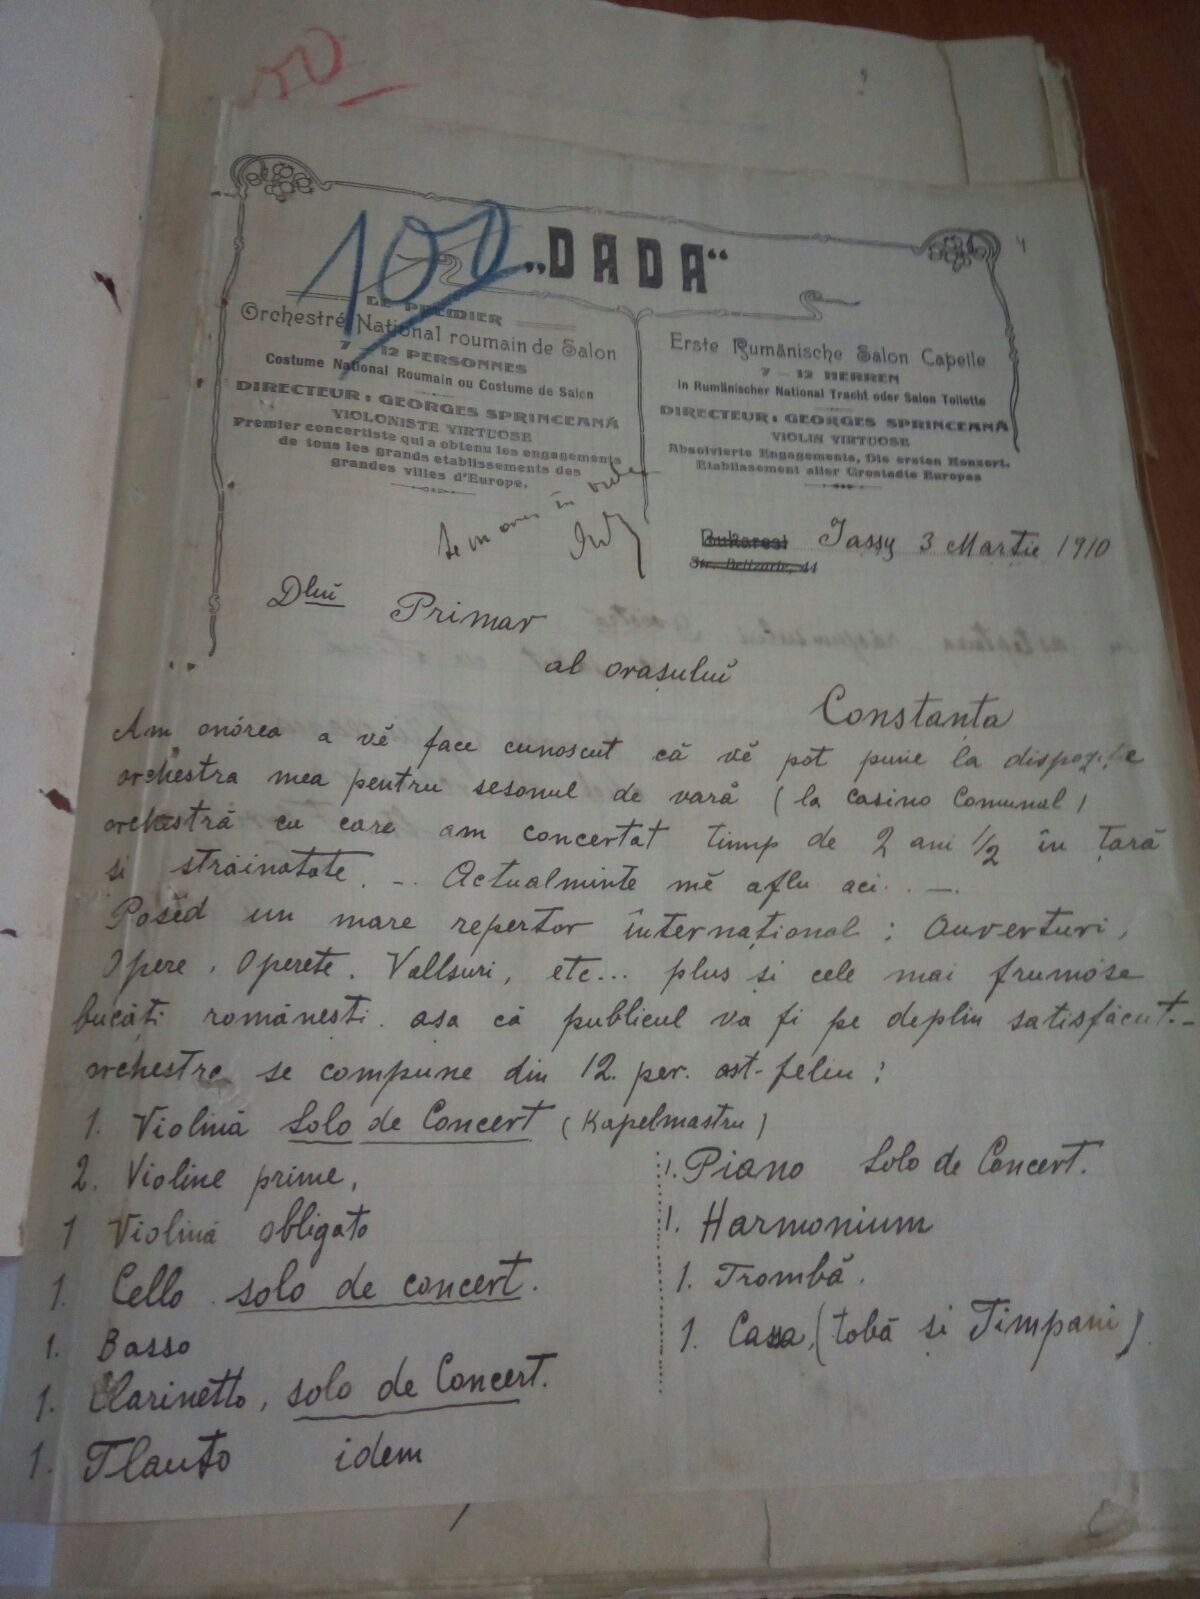 100
„DADA“
LE PREMIER
Orchestré National roumain de Salon
7 – 12 PERSONNES
Costume National Roumain ou Costume de Salon
DIRECTEUR: GEORGES SPRINCEANĂ
VIOLONISTE VIRTUOSE
Premier concertiste qui a obtenu les engagements
de tous les grands etablissements des
grandes villes d'Europe.
Erste Rumänische Salon Capelle
7 – 12 HERREN
in Rumänischer National Tracht oder Salon Toilette
DIRECTEUR: GEORGES SPRINCEANĂ
VIOLIN VIRTUOSE
Absolvierte Engagements, Die ersten Konzert.
Etablissement aller Grostadte Europas
Se va avea în
Bukarest Jassy 3 Martie 1910
Str. 44
Dlui Primar
al orașuluĭ
Constanța
Am onórea a vĕ face cunoscut că vĕ pot pune la dispoziție
orchestra mea pentru sesonul de vară (la Casino Comunal)
orchestră cu care am concertat timp de 2 ani 1/2 în țară
si străinatate. –. Actualminte mĕ aflu aci. . –.
Posĕd un mare repertor internațional: Ouverturi,
Opere. Operete. Vallsuri, etc... plus si cele mai frumóse
bucăți românești. asa că publicul va fi pe deplin satisfăcut. –
orchestra se compune din 12. per. ast-feliu:
1. Violină Solo de Concert (Kapelmastru)
2. Violine prime,
1 Violină obligato
1. Cello solo de concert.
1. Basso
1. Clarinetto, solo de Concert.
1. Flauto idem
1. Piano Solo de Concert.
1. Harmonium
1. Trombă.
1. Cassa, (tobă și Timpani)